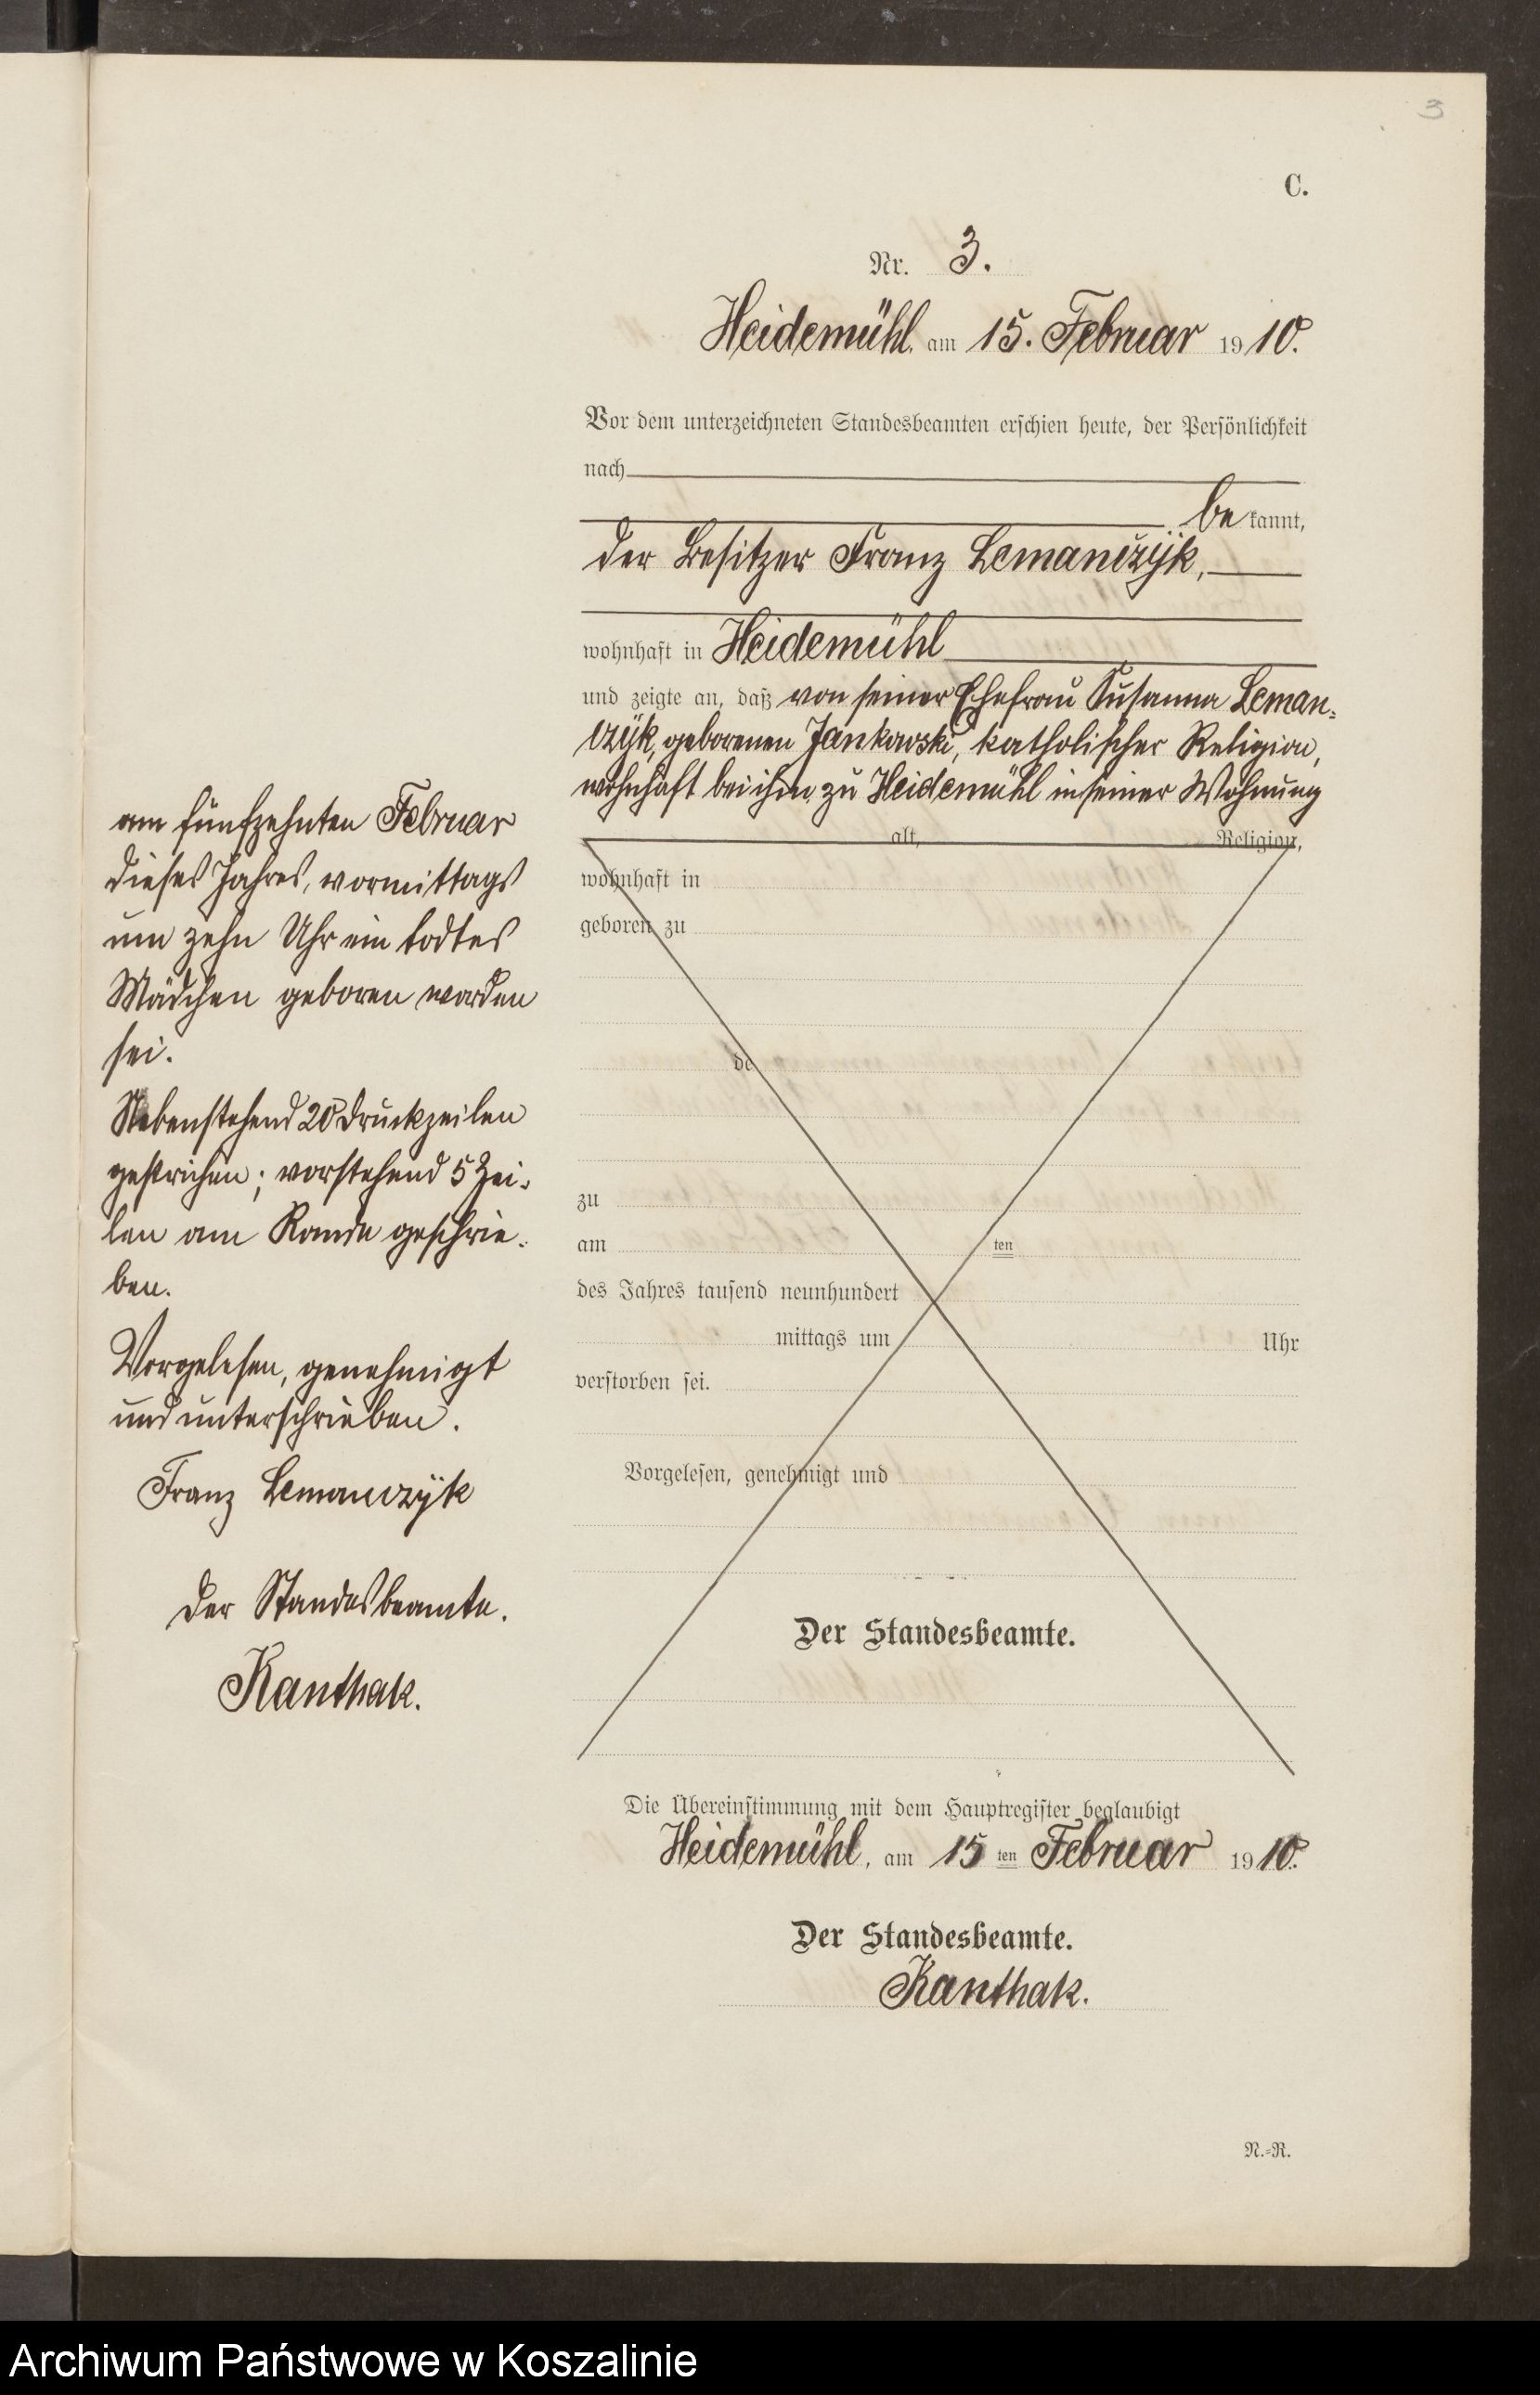 3
C.
Nr. 3.
Heidemühl, am 15. Februar 1910.
Vor dem unterzeichneten Standesbeamten erschien heute, der Persönlichkeit
nach
be kannt,
der Besitzer Franz Lemańczÿk,
wohnhaft in Heidemühl
und zeigte an, daß von seiner Ehefrau Susanna Leman-
czÿk, geborenen Jankowski, katholischer Religion,
wohnhaft bei ihm zu Heidemühl in seiner Wohnung
alt, Religion,
wohnhaft in
geboren zu
de
zu
am ten
des Jahres tausend neunhundert
mittags um Uhr
verstorben sei.
Vorgelesen, genehmigt und
Der Standesbeamte.
am fünfzehnten Februar
dieses Jahres, vormittags
um zehn Uhr ein todtes
Mädchen geboren worden
sei.
Nebenstehend 20 Druckzeilen
gestrichen; vorstehend 5 Zei-
len am Rande geschrie-
ben.
Vorgelesen, genehmigt
und unterschrieben.
Franz Lemanczÿk
Der Standesbeamte.
Kanthak.
Die Übereinstimmung mit dem Hauptregister beglaubigt
Heidemühl, am 15 ten Februar 1910.
Der Standesbeamte.
Kanthak.
N.-R.
Archiwum Państwowe w Koszalinie